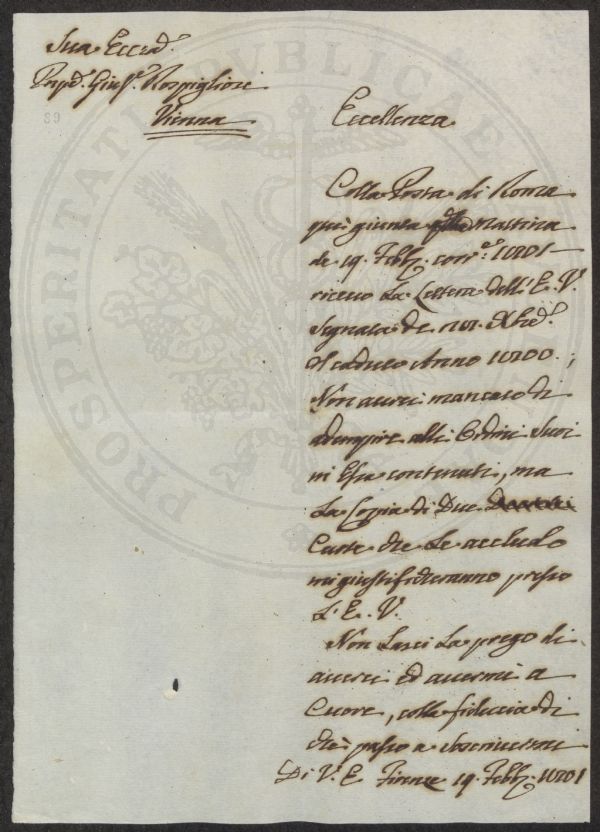 Sua Eccza.
Prpe. Giuspe. Rospigliosi
Vienna
39
PROSPERITATI PUBLICAE
Eccellenza
Colla Posta di Roma
qui giunta Mattina
de 19. Febb. corre. 1801
ricevo La Lettera dell'E. V.
Segnata de Xbre.
Scaduto Anno 1800.;
Non aurei mancato di
adempire alli Ordini Suoi
in Essa contenuti, ma
La Copia di Due
Carte che Le accludo
mi giustificheranno presso
L'E. V.
Non Lasci La prego di
averci ed avermi a
Cuore, colla fiducia di
che passo a soscrivermi
Di V. E. Firenze 19. Febb. 1801